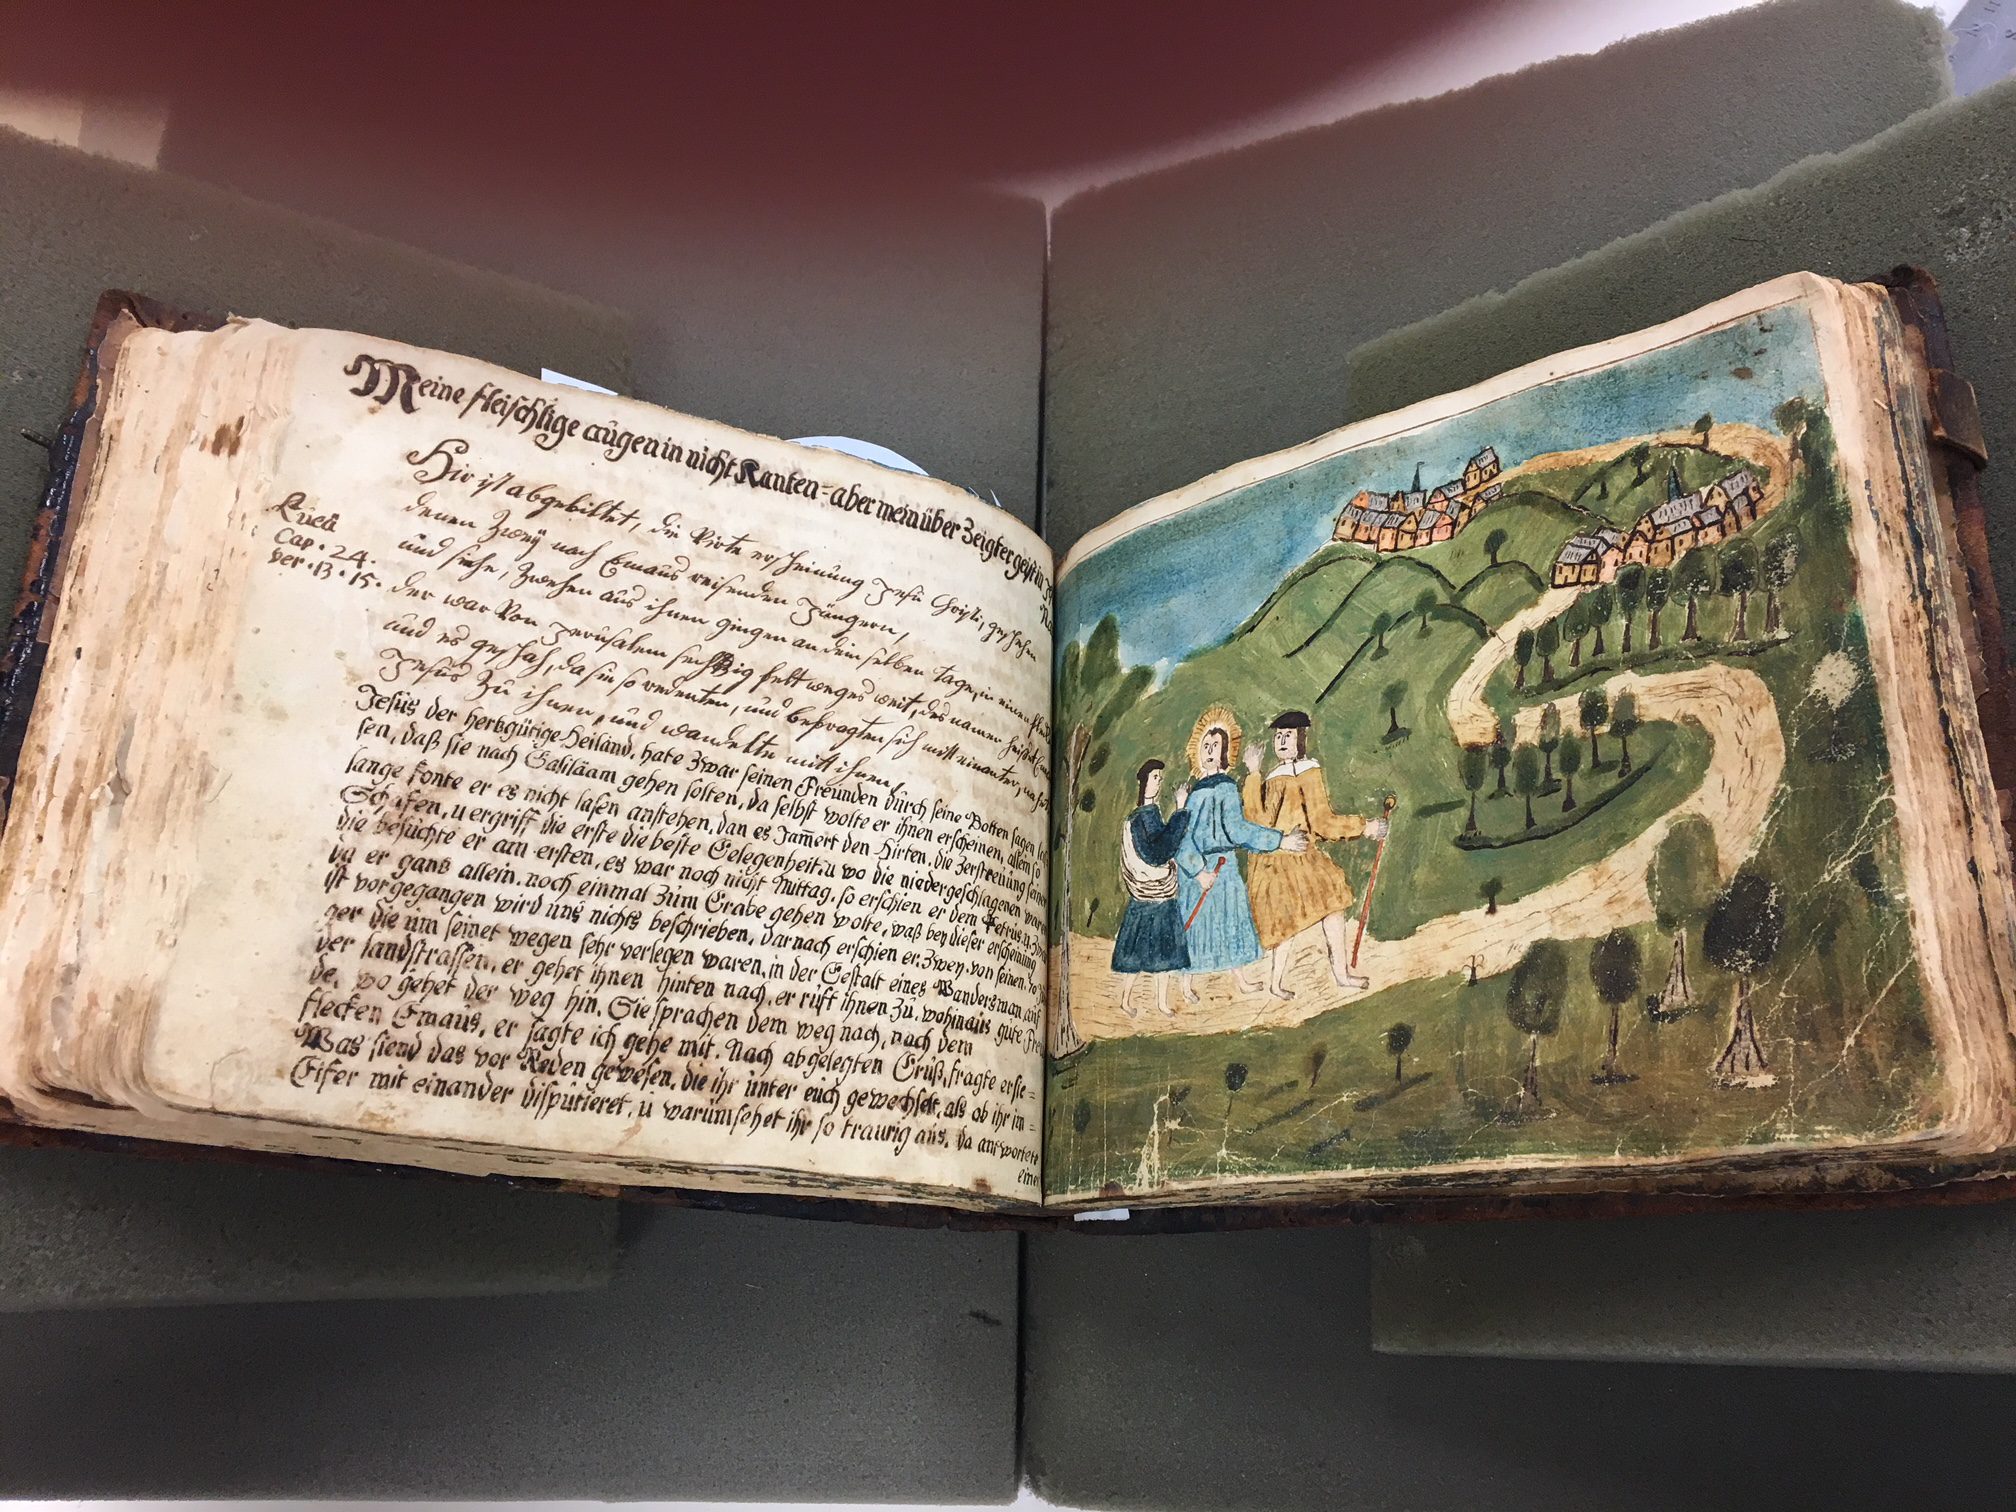 Meine fleischlige augen in nicht Kanten = aber mein über Zeigter geist in
Hir ist abgebiltet, die Virte erscheinung Jesu Christi, geschehen
denen Zweÿ nach Emaus reisenden Jüngern,
Lucä
Cap. 24.
ver. 13. 15.
und siehe, Zwehen aus ihnen gingen an dem selben tage, in einen
der war Von Jerusalem sechtzig felt weges weit, des namen heist
und es geschah, da sie so redenten, und befragten sich mitt einanter,
Jesus Zu ihnen, und wandelte mitt ihnen,
Jesüs der hertzgütige Heiland, hate Zwar seinen Freünden dürch seine Botten sagen
sen, daß sie nach Galiläam gehen solten, da selbst wolte er ihnen erscheinen, allein so
lange konte er es nicht lasen anstehen, dan es Jam̄ert den Hirten, die Zerstreüüng seiner
Schafen, u ergriff die erste die beste Gelegenheit, u wo die niedergeschlagenen waren
die besüchte er am ersten, es war noch nicht Mittag, so erschien er dem Petrüs,
da er gans allein, noch einmal Züm Grabe gehen wolte, waß beÿ dieser erscheinüng
ist vorgegangen wird üns nichts beschrieben, darnach erschien er, Zweÿ, von seinen,
ger die üm seinet wegen sehr verlegen waren, in der Gestalt eines Wandersman, auf
der landstrassen, er gehet ihnen hinten nach, er rüft ihnen Zü, wohinaüs gute
de, wo gehet der weg hin, Sie sprachen dem weg nach, nach dem
flecken Emaüs, er sagte ich gehe mit. Nach abgelegten Grüß, fragte er sie =
Was siend das vor Reden gewesen, die ihr ünter eüch gewechselt, als ob ihr im =
Eifer mit einander dispütieret, ü warüm sehet ihr so traurig aüs, da antwortete
einer